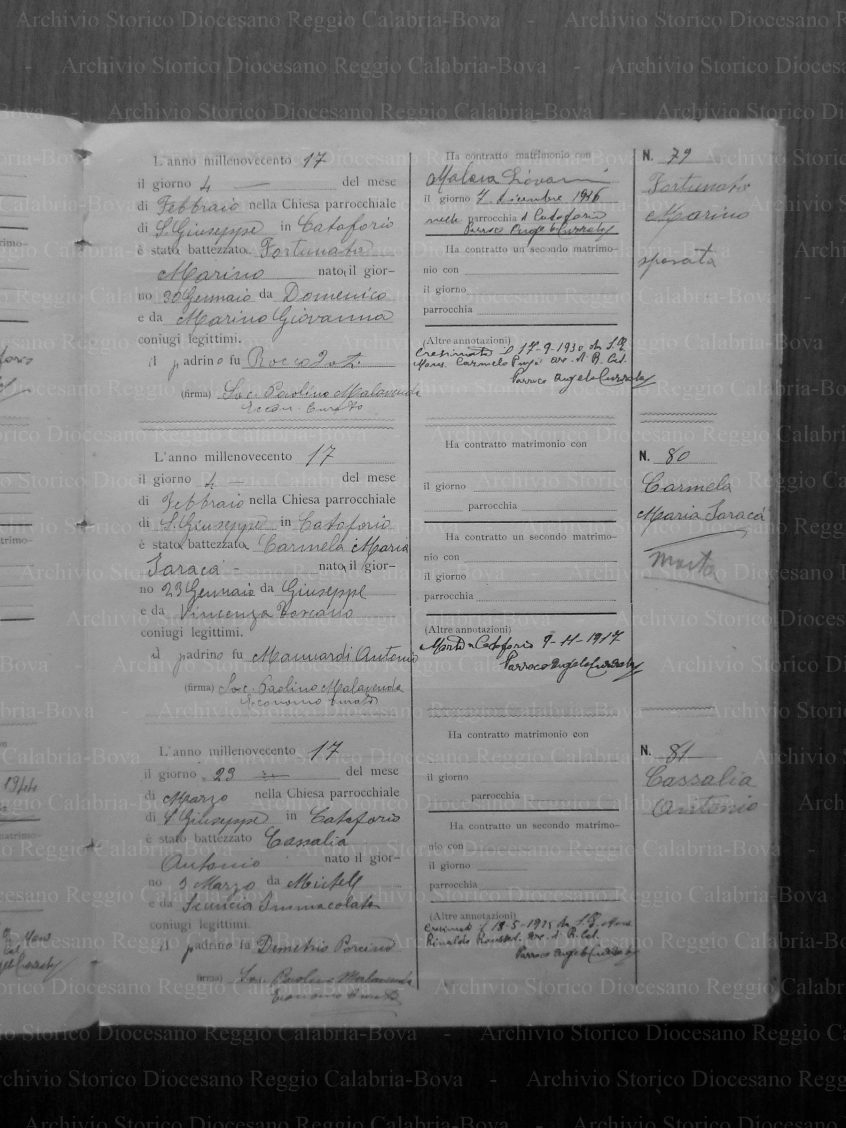 L'anno millenovecento 17
il giorno 4 — del mese
di Febbraio nella Chiesa parrocchiale
di S. Giuseppe in Cataforio
è stata battezzata Fortunata
Marino nata il gior-
no 30 Gennaio da Domenico
e da Marino Giovanna
coniugi legittimi.
Il padrino fu Rocco
(firma) Sac. Paolino Malavenda
Econ. Curato
L'anno millenovecento 17
il giorno 4 — del mese
di Febbraio nella Chiesa parrocchiale
di S. Giuseppe in Cataforio
è stata battezzata Carmela Maria
Saracà - nata il gior-
no 23 Gennaio da Giuseppe
e da Vincenza Toscano
coniugi legittimi.
Il padrino fu Antonio
(firma) Sac. Paolino Malavenda
Economo Curato
L'anno millenovecento 17
il giorno 29 — del mese
di Marzo nella Chiesa parrocchiale
di S. Giuseppe in Cataforio
è stato battezzato Cassalia
Antonio nato il gior-
no 3 Marzo da Michele
e da Immacolata
coniugi legittimi.
Il padrino fu Demetrio Porcino
(firma) Sac. Paolino Malavenda
Economo Curato
Ha contratto matrimonio con
Malara Giovanni
il giorno 7 dicembre 1946
nella parrocchia di Cataforio
Parroco Angelo Currato
Ha contratto un secondo matrimo-
nio con
il giorno
parrocchia
(Altre annotazioni)
Cresimata il 17-9-1930 da S. E.
Mons. Carmelo Pujia arc. di R. Cal.
Parroco Angelo Currato
Ha contratto matrimonio con
il giorno
parrocchia
Ha contratto un secondo matrimo-
nio con
il giorno
parrocchia
(Altre annotazioni)
Morta a Cataforio 9-11-1917
Parroco Angelo Currato
Ha contratto matrimonio con
il giorno
parrocchia
Ha contratto un secondo matrimo-
nio con
il giorno
parrocchia
(Altre annotazioni)
Cresimato il 18-5-1925 da S. E. Mons.
Rinaldo Rousset arc. di R. Cal.
Parroco Angelo Currato
N. 79
Fortunata
Marino
sposata
N. 80
Carmela
Maria Saracà
Morta
N. 81
Cassalia
Antonio
Archivio Storico Diocesano Reggio Calabria-Bova